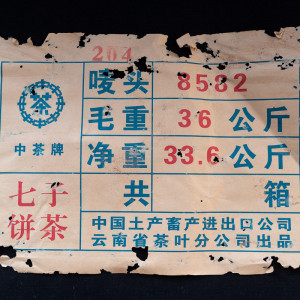 204
唛头 8582
毛重 36 公斤
净重 33.6 公斤
共 箱
茶
中茶牌
七子
饼茶
中国土产畜产进出口公司
云南省茶叶分公司出品